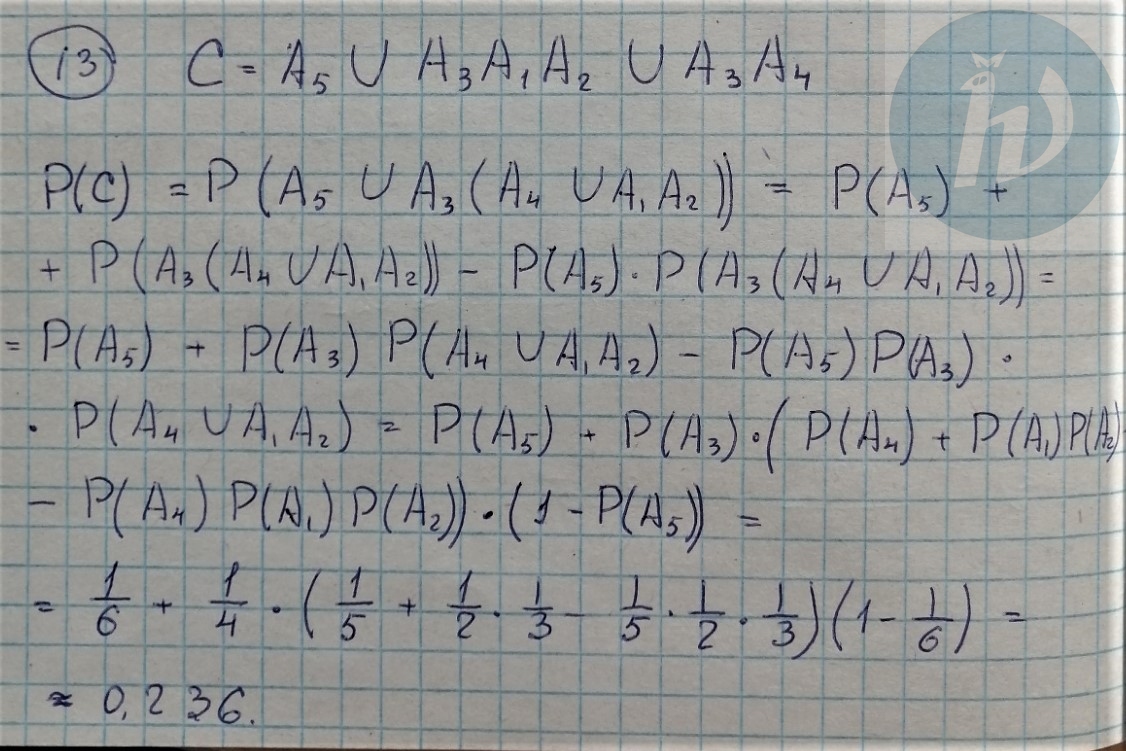 13 C = A₅ ∪ A₃A₁A₂ ∪ A₃A₄
P(C) = P(A₅ ∪ A₃(A₄ ∪ A₁A₂)) = P(A₅) +
+ P(A₃(A₄ ∪ A₁A₂)) - P(A₅) · P(A₃(A₄ ∪ A₁A₂)) =
= P(A₅) + P(A₃) P(A₄ ∪ A₁A₂) - P(A₅) P(A₃) ·
· P(A₄ ∪ A₁A₂) = P(A₅) + P(A₃) · (P(A₄) + P(A₁)P(A₂)
- P(A₄) P(A₁) P(A₂)) · (1 - P(A₅)) =
= 1/6 + 1/4 · (1/5 + 1/2 · 1/3 - 1/5 · 1/2 · 1/3)(1 - 1/6) =
≈ 0,236.